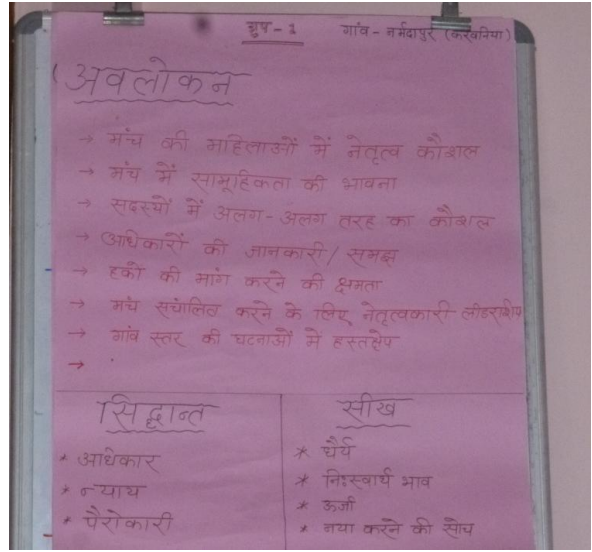 ग्रुप - 2 गांव - नर्मदापुर (करवनिया)
अवलोकन
→ मंच की महिलाओं में नेतृत्व कौशल
→ मंच में सामूहिकता की भावना
→ सदस्यों में अलग-अलग तरह का कौशल
→ अधिकारों की जानकारी / समझ
→ हकों की मांग करने की क्षमता
→ मंच संचालित करने के लिए नेतृत्वकारी लीडरशिप
→ गांव स्तर की घटनाओं में हस्तक्षेप
→
सिद्धान्त
* अधिकार
* न्याय
* पैरोकारी
सीख
* धैर्य
* निःस्वार्थ भाव
* ऊर्जा
* नया करने की सोच